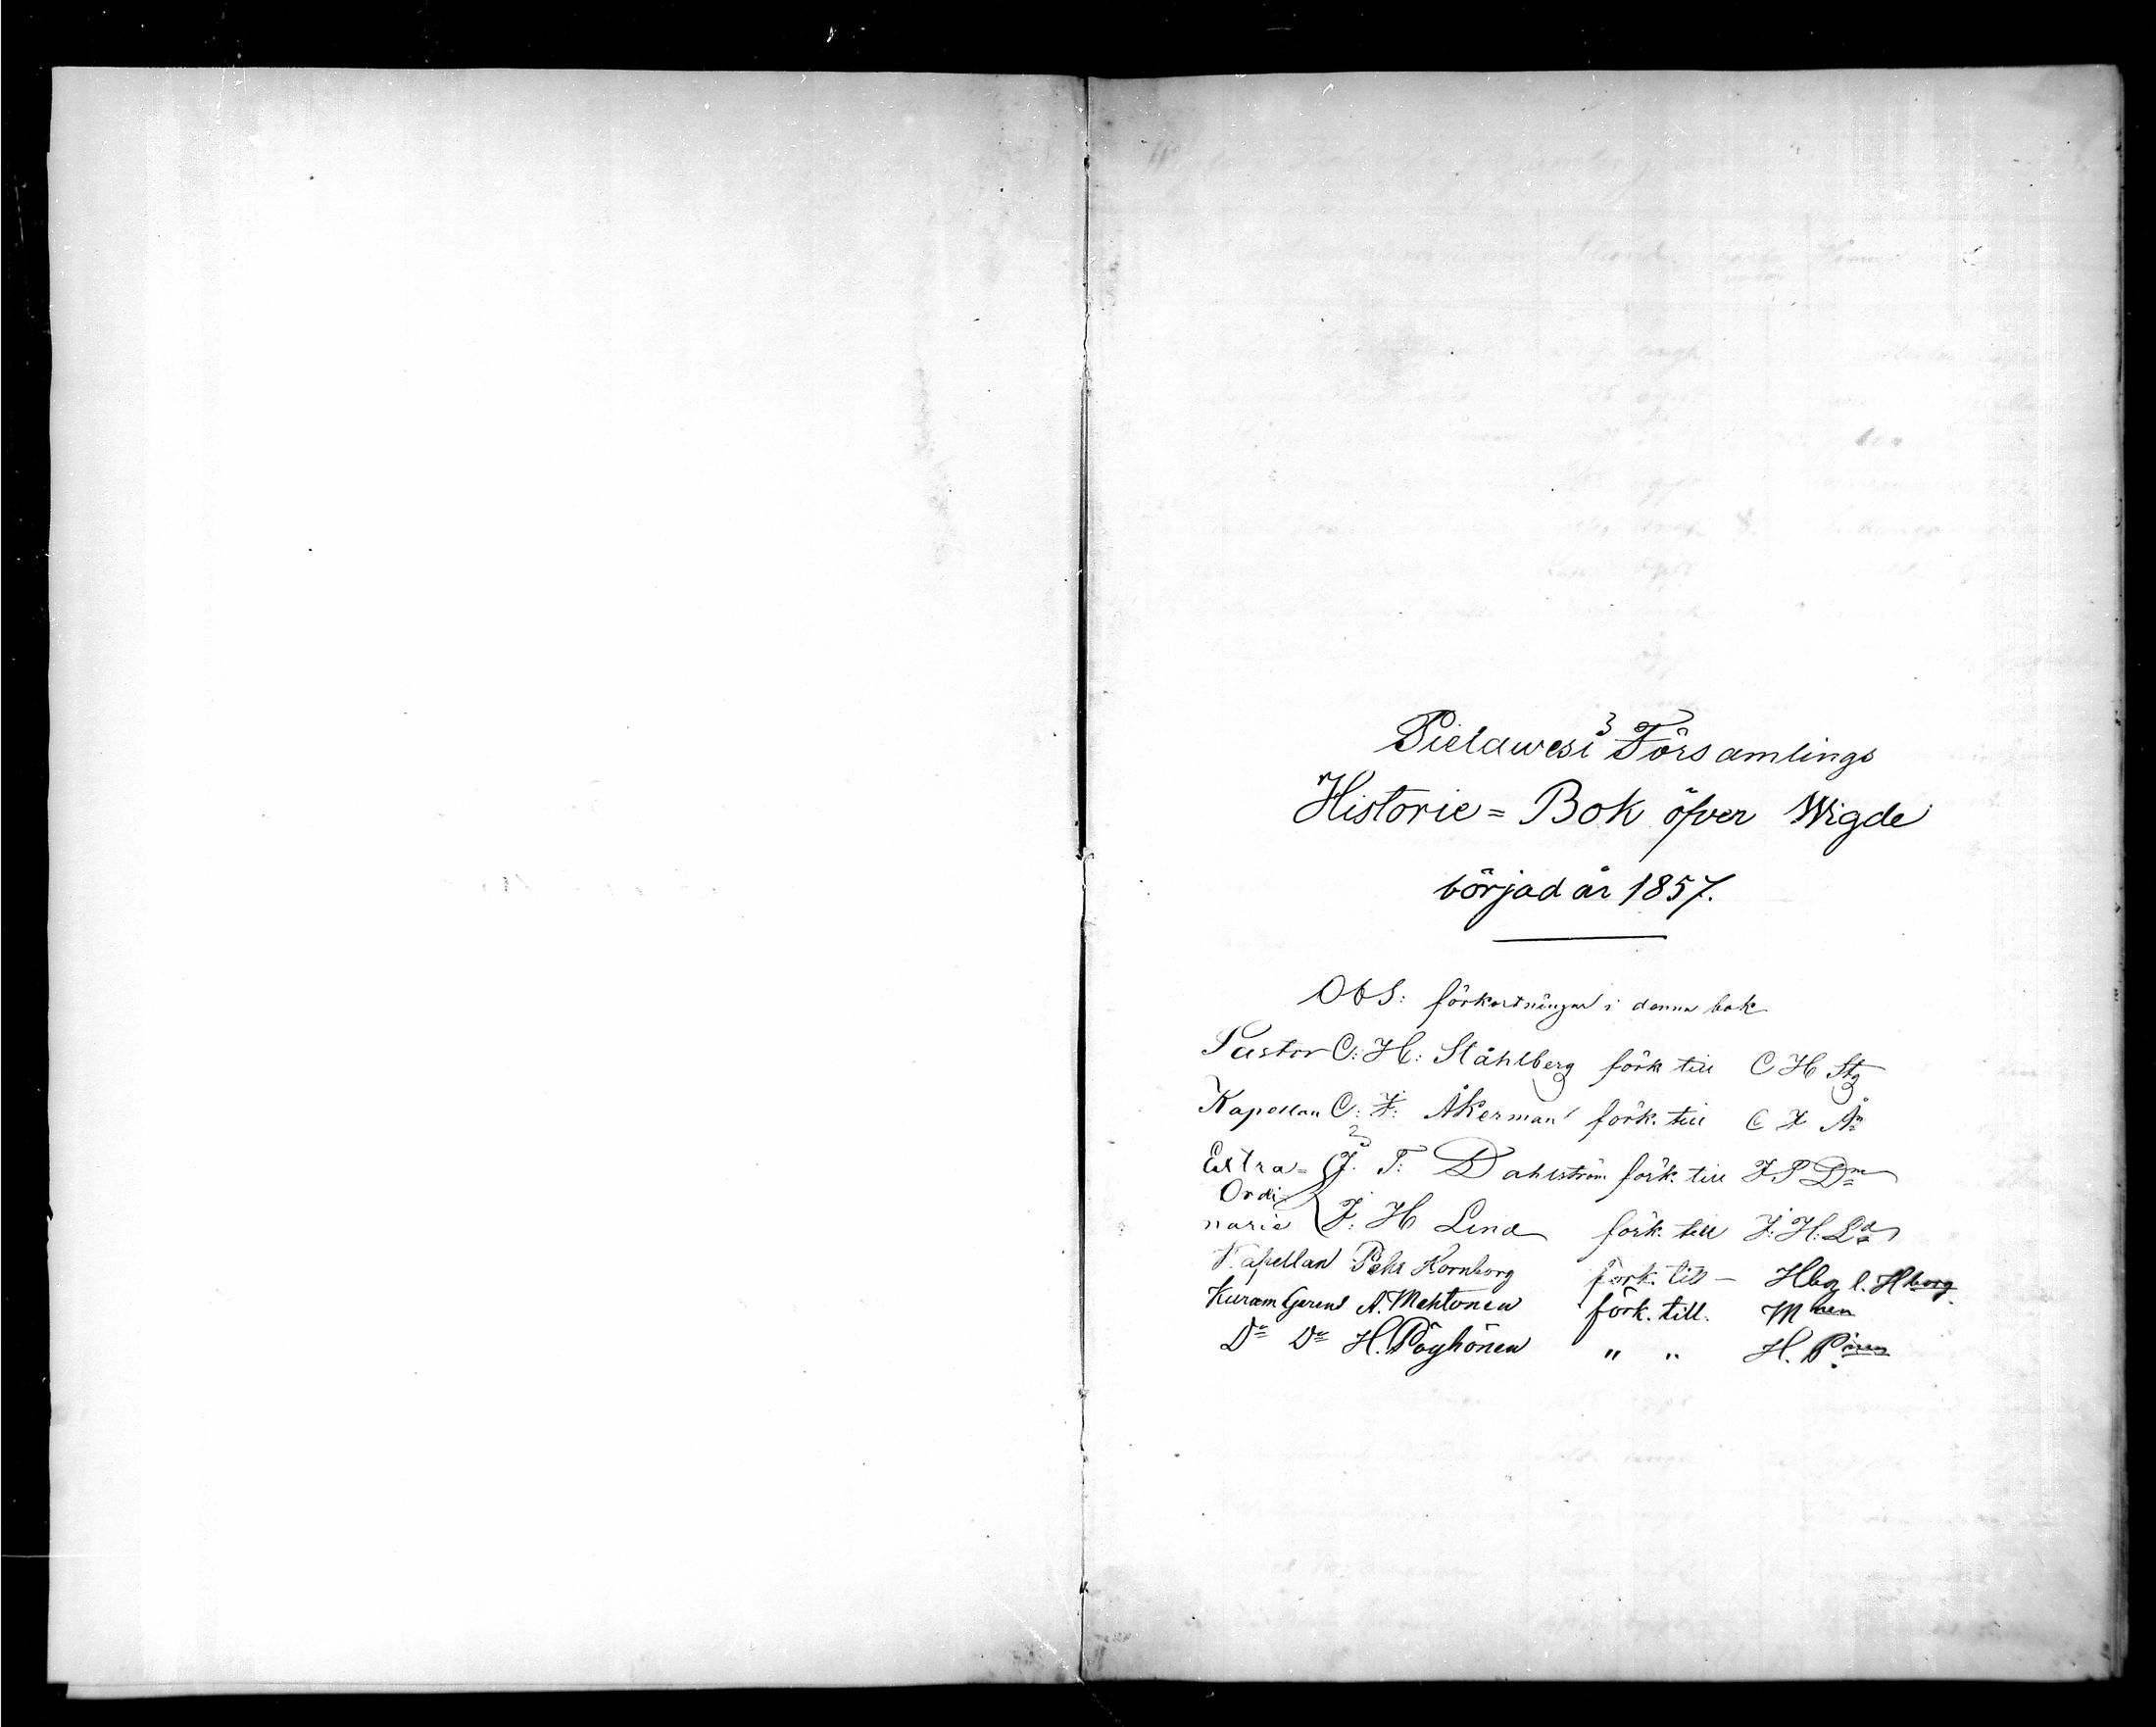 Pielawesi Församlings
Historie = Bok öfver Wigde
börjad år 1857.
Obs: förkortningar i denna bok
Pastor C: H: Ståhlberg förk till C H Stg
Kapellan C: F: Åkerman förk. till C F Ån
Extra= J. P: Dahlström förk. till J P Dm
Ordi
narie J: H Lind förk. till J: H: Ld
Kapellan Pehr Hornborg förk. till — Hbg l. Hborg.
Kuram Gerens A. Mehtonen förk. till. Mnen
Do Do H. Pöyhönen " " H. Pnen